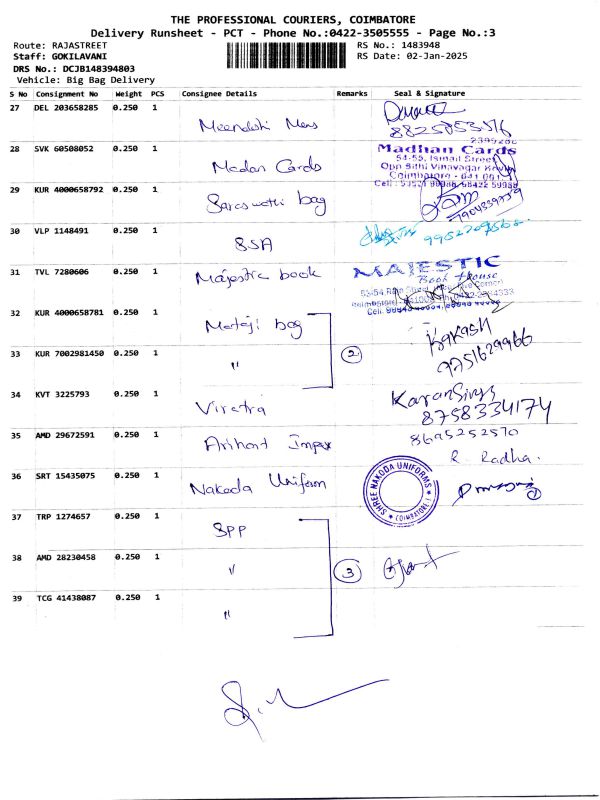 THE PROFESSIONAL COURIERS, COIMBATORE
Delivery Runsheet - PCT - Phone No.:0422-3505555 - Page No.:3
Route: RAJASTREET
RS No.: 1483948
Staff: GOKILAVANI
RS Date: 02-Jan-2025
DRS No.: DCJB148394803
Vehicle: Big Bag Delivery
S No Consignment No Weight PCS Consignee Details Remarks Seal & Signature
27 DEL 203658285 0.250 1
Meenakshi Mens
28 SVK 60508052 0.250 1
Madan Cards
Madhan Cards
54-55, Ismail Street
Opp Sithi Vinayagar
Coimbatore - 641 001
29 KUR 4000658792 0.250 1
Saraswathi bag
30 VLP 1148491 0.250 1
SSA
31 TVL 7280606 0.250 1
Majestic book
MAJESTIC
Book House
32 KUR 4000658781 0.250 1
Mataji bag
33 KUR 7002981450 0.250 1
"
2
9751629966
34 KVT 3225793 0.250 1
Viratra
Karan Singh
8758334174
35 AMD 29672591 0.250 1
Arihant Impex
8695252570
R. Radha.
36 SRT 15435075 0.250 1
Nakoda Uniform
SHREE NAKODA UNIFORMS
* COIMBATORE-1 *
37 TRP 1274657 0.250 1
SPP
38 AMD 28230458 0.250 1
"
3
39 TCG 41438087 0.250 1
"